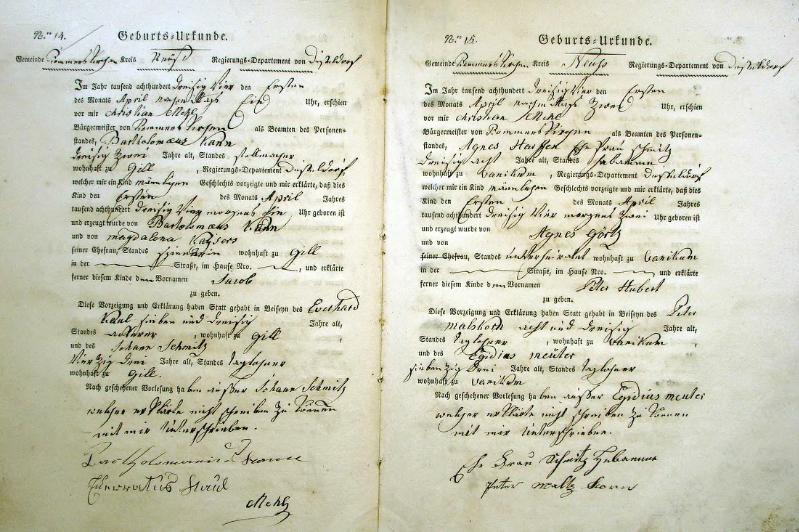 No. 14. Geburts-Urkunde.
Gemeinde Rommerskirchen Kreis Neuß Regierungs-Departement von Düsseldorf
Im Jahr tausend achthundert dreisig vier den Ersten
des Monats April nachmittags Uhr, erschien
vor mir Christian Mehl
Bürgermeister von Rommerskirchen als Beamten des Personen-
standes, Bartholomaus Kann
dreisig zwei Jahre alt, Standes
wohnhaft zu Gill, Regierungs-Departement Düsseldorf
welcher mir ein Kind männlichen Geschlechts vorzeigte und mir erklärte, daß dies
Kind den Ersten des Monats April Jahres
tausend achthundert dreisig vier morgens Uhr geboren ist
und erzeugt wurde von Bartholomaus Kann
und von Magdalena Kaysers
seiner Ehefrau, Standes wohnhaft zu Gill
in der Straß, im Hause Nro. , und erklärte
ferner diesem Kinde den Vornamen Jacob
zu geben.
Diese Vorzeigung und Erklärung haben Statt gehabt in Beiseyn des Everhard
sieben und dreisig Jahre alt,
Standes Ackerer, wohnhaft zu Gill
und des Johann Schmitz
vierzig drei Jahre alt, Standes Taglöhner
wohnhaft zu Gill.
Nach geschehener Vorlesung haben außer Johann Schmitz
welcher erklärte nicht schreiben zu können
mit mir unterschrieben.
Mehl
No. 15. Geburts-Urkunde.
Gemeinde Rommerskirchen Kreis Neuß Regierungs-Departement von Düsseldorf
Im Jahr tausend achthundert dreisig vier den Ersten
des Monats April nachmittags zwei Uhr, erschien
vor mir Christian Mehl
Bürgermeister von Rommerskirchen als Beamten des Personen-
standes, Agnes Ehefrau Schmitz
dreisig acht Jahre alt, Standes Hebamme
wohnhaft zu Vanikum, Regierungs-Departement Düsseldorf
welcher mir ein Kind männlichen Geschlechts vorzeigte und mir erklärte, daß dies
Kind den Ersten des Monats April Jahres
tausend achthundert dreisig vier morgens zwei Uhr geboren ist
und erzeugt wurde von Agnes Görtz
und von
seiner Ehefrau, Standes wohnhaft zu Vanikum
in der Straß, im Hause Nro. , und erklärte
ferner diesem Kinde den Vornamen Peter Hubert
zu geben.
Diese Vorzeigung und Erklärung haben Statt gehabt in Beiseyn des Peter
acht und dreisig Jahre alt,
Standes Taglöhner, wohnhaft zu Vanikum
und des Egidius Meuter
siebenzig drei Jahre alt, Standes Taglöhner
wohnhaft zu Vanikum
Nach geschehener Vorlesung haben außer Egidius Meuter
welcher erklärte nicht schreiben zu können
mit mir unterschrieben.
Ehe Frau Schmitz Hebamme
Peter